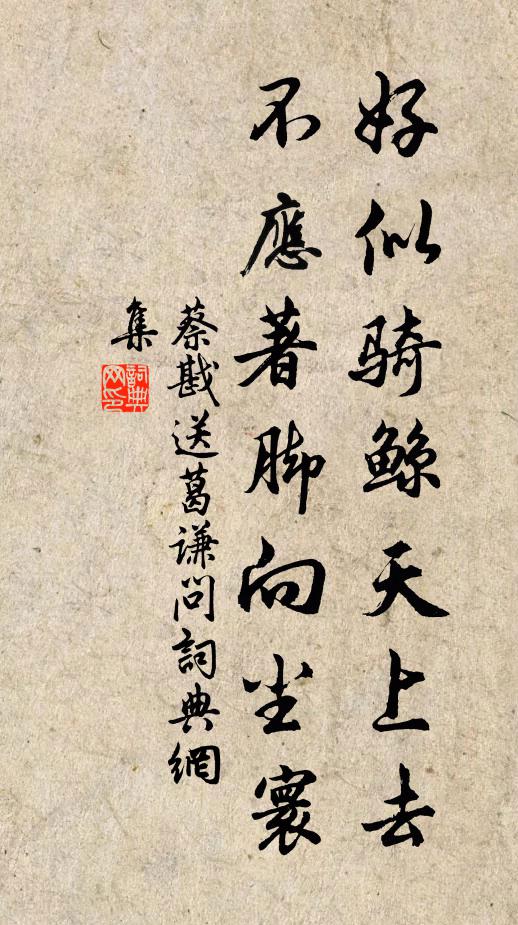 好似骑鲸天上去
不應著脚向尘寰
蔡戡送葛谦问詞典網
集
詞典
网印